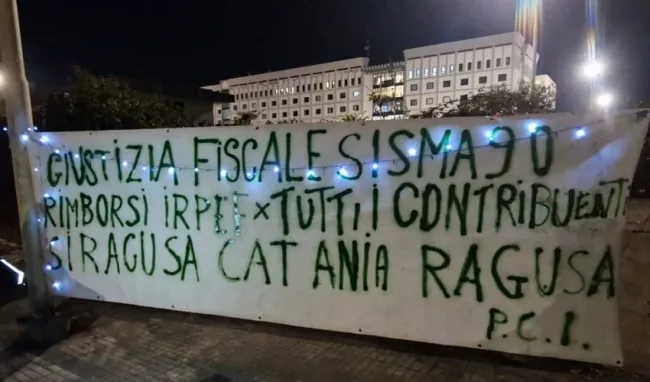 GIUSTIZIA FISCALE SISMA 90
RIMBORSI IRPEF × TUTTI I CONTRIBUENTI
SIRAGUSA CATANIA RAGUSA
P.C.I.